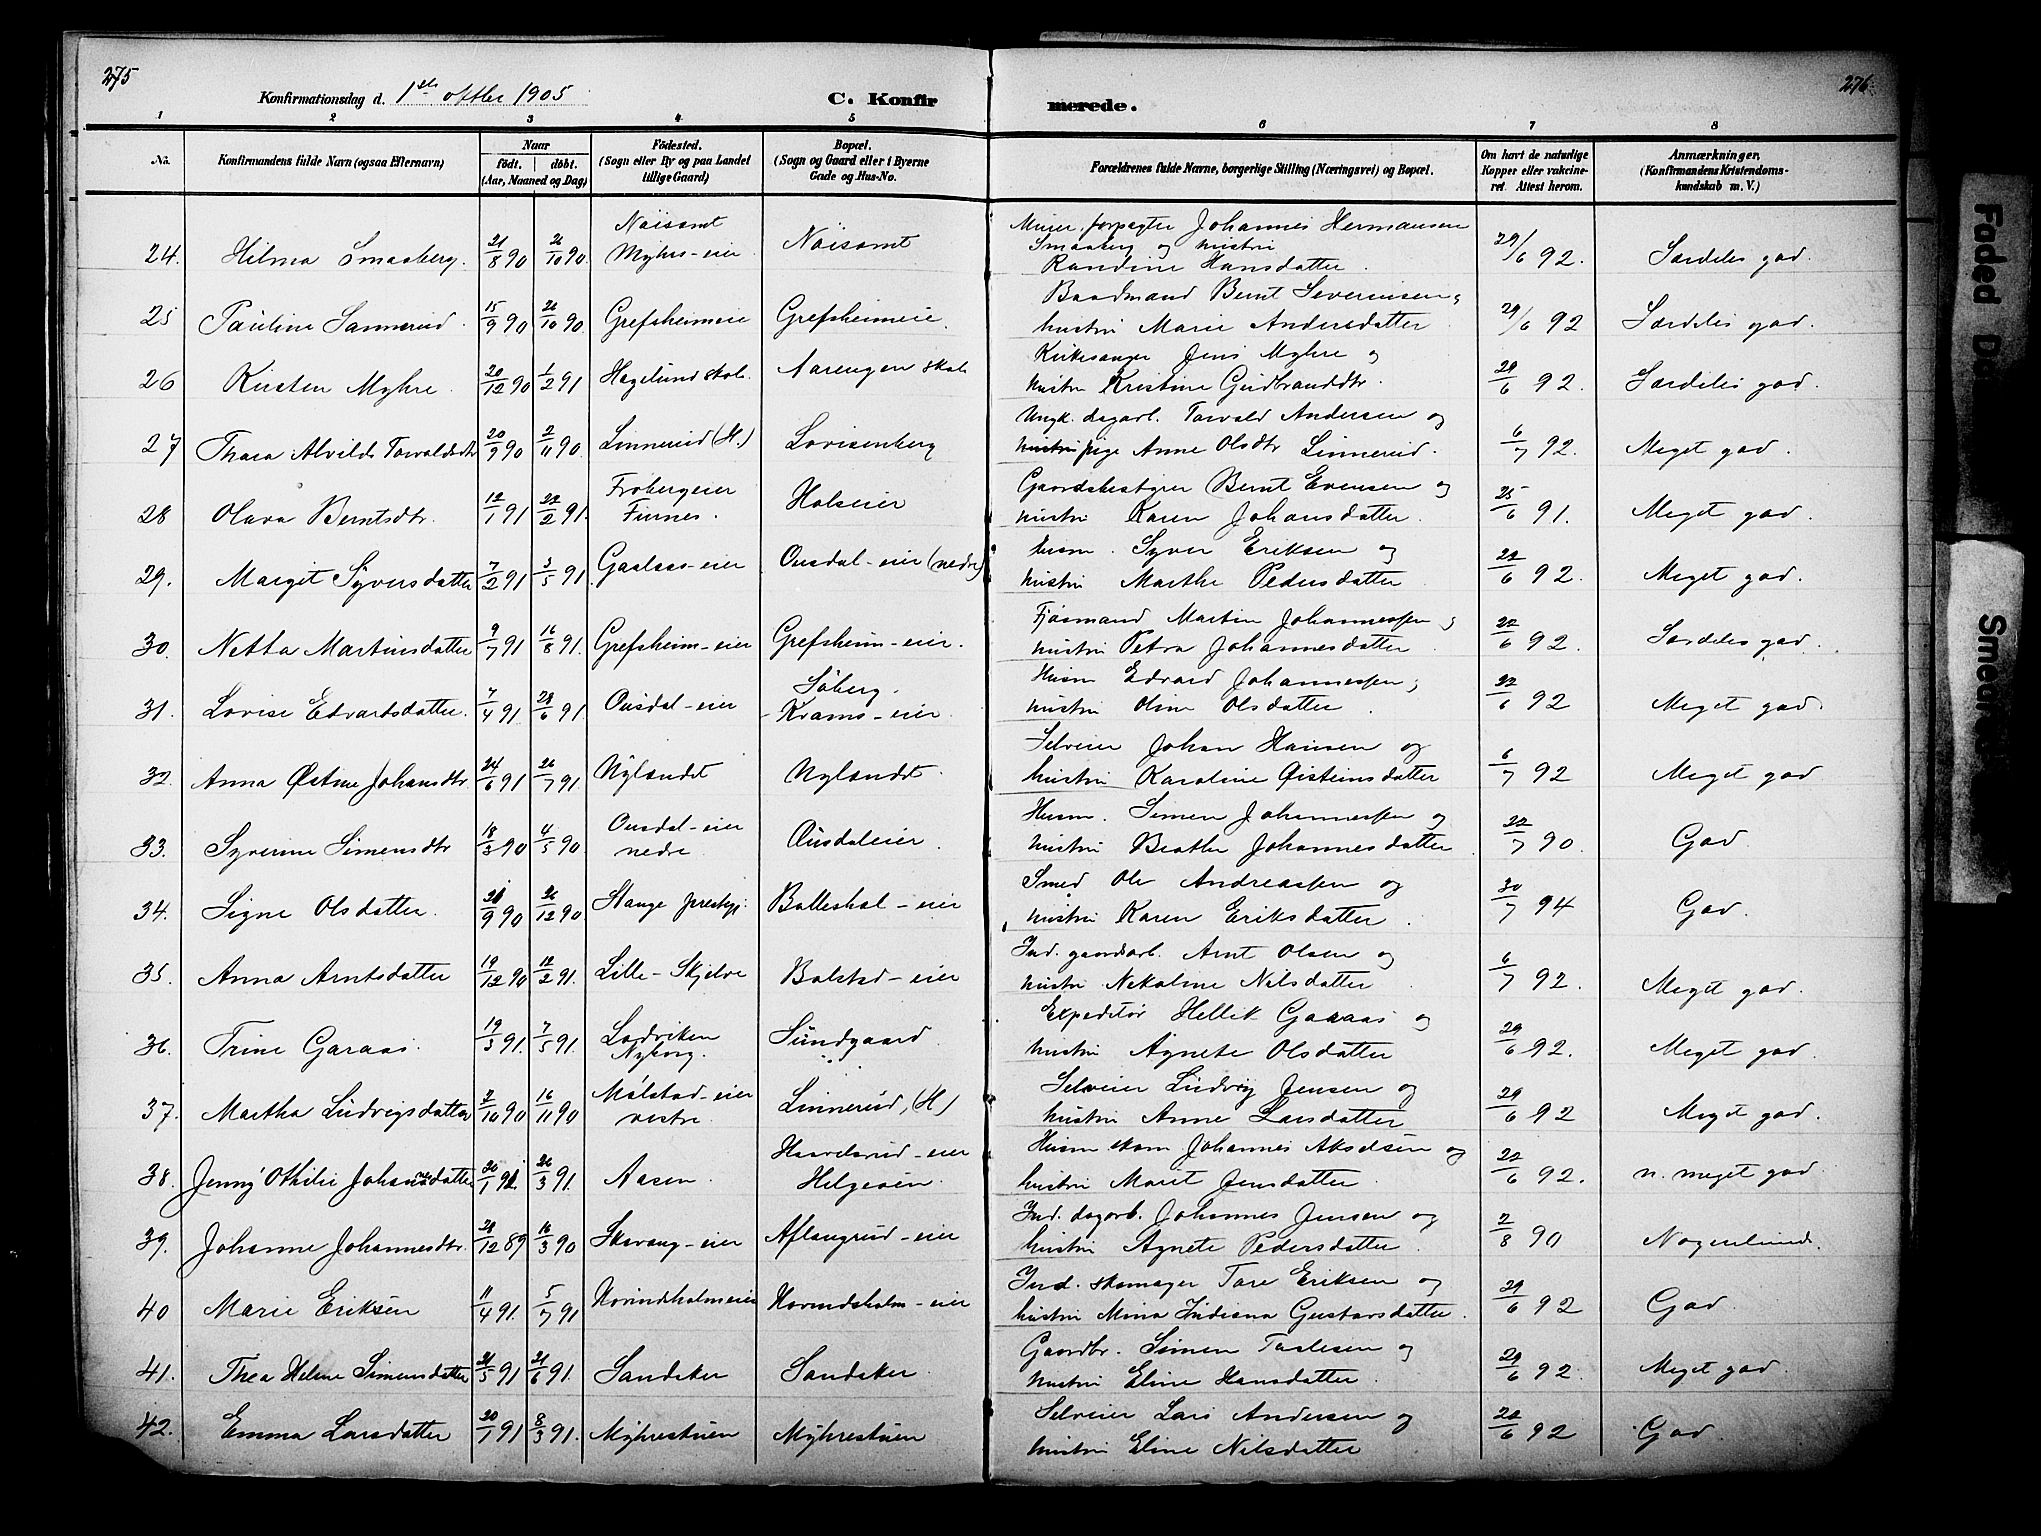 275
276
Konfirmationsdag d. 1ste oktber 1905
C. Konfirmerede.
1 2 3 4 5 6 7 8
No. Konfirmandens fulde Navn (ogsaa Efternavn) Naar født. døbt. (Aar, Maaned og Dag) Fødested. (Sogn eller By og paa Landet tillige Gaard) Bopæl. (Sogn og Gaard eller i Byerne Gade og Hus-No. Forældrenes fulde Navne, borgerlige Stilling (Næringsvei) og Bopæl. Om havt de naturlige Kopper eller vakcineret. Attest herom. Anmærkninger, (Konfirmandens Kristendomskundskab m. V.)
24. Hilma Smaaberg. 21/8 90 26/10 90. Nøisomt Myhrs-eier Nøisomt Meieriforpagter Johannes Hermansen Smaaberg og hustru Randine Hansdatter. 29/6 92. Særdeles god.
25 Pauline Sannerud. 15/9 90 26/10 90. Grefsheimeie Grefsheimeie. Baadmand Bernt Severinsen og hustru Marie Andersdatter 29/6 92 Særdeles god.
26 Kirsten Myhre. 20/12 90 1/2 91 Hagelund skole. Aarengen skole Kirkesanger Jens Myhre og hustru Kristine Gudbrandsdtr. 29/6 92. Særdeles god.
27 Thora Alvilde Torvaldsdtr 20/9 90 2/11 90. Linnerud (H.) Lovisenberg Ungk. dagarb. Torvald Andersen og pige Anne Olsdtr Linnerud. 6/7 92. Meget god.
28 Olava Berntsdtr. 12/1 91 22/2 91. Frobergeier Furnes. Holseier Gaardsbestyrer Bernt Evensen og hustru Karen Johansdatter. 25/6 91. Meget god.
29. Margit Syversdatter 7/2 91 3/5 91. Gaalaas-eier Ousdal-eier (nedre) husm. Syver Eriksen og hustru Marthe Pedersdatter 22/6 92. Meget god.
30. Netta Martinsdatter 9/7 91 16/8 91. Grefsheim-eier Grefsheim-eier. Fjøsmand Martin Johannessen og hustru Petra Johannesdatter. 22/6 92. Særdeles god.
31. Lovise Edvartsdatter. 7/4 91 28/6 91 Ousdal-eier Søberg. Krams-eier. Husm Edvard Johannessen og hustru Oline Olsdatter. 22/6 92 Meget god.
32. Anna Østine Johansdtr. 24/6 91 26/7 91. Nylændet Nylændet. Selveier Johan Hansen og hustru Karoline Øisteinsdatter 6/7 92 Meget god
33. Syverine Simensdtr 18/3 90 4/5 90. Ousdal-eier nedre. Ousdaleier. Husm. Simen Johannessen og hustru Beathe Johannesdatter. 22/7 90. God
34. Signe Olsdatter. 21/9 90 26/12 90 Stange prestegj. Balleshol-eier Smed Ole Andreassen og hustru Karen Eriksdatter. 30/7 94 God.
35. Anna Arntsdatter 19/12 90 12/2 91. Lille-Skjelve Bolstad-eier Ind. gaardsarb. Arnt Olsen og hustru Nekoline Nilsdatter. 6/7 92. Meget god.
36. Trine Garaas. 19/3 91. 7/5 91. Lodviken Nyborg. Sundgaard. Expeditør Hellik Garaas og hustru Agnete Olsdatter 29/6 92. Meget god.
37. Martha Ludvigsdatter 2/10 90 16/11 90 Mølstad-eier vestre. Linnerud, (H.) Selveier Ludvig Jensen og hustru Anne Larsdatter 29/6 92 Meget god.
38. Jenny Othilie Johannesdatter 20/1 91 26/3 91. Aasen. Haavelsrud-eier Helgeøen. Husm skom Johannes Aksdsen og hustru Marit Jensdatter. 22/6 92. n. meget god
39. Johanne Johannesdtr. 28/12 89 16/3 90 Skavang-eier Aflangrud-eier Ind. dagarb. Johannes Jensen og hustru Agnete Pedersdatter. 2/8 90 Nogenlunde.
40 Marie Eriksen 11/4 91. 5/7 91 Hovindsholmeier Hovindsholm-eier Ind. skomager Tore Eriksen og hustru Mina Indiana Gustavsdatter. 29/6 92 God.
41. Thea Helene Simensdatter 21/5 91 21/6 91. Sandaker Sandaker. Gaardbr. Simen Taalesen og hustru Eline Hansdatter. 29/6 92. Meget god.
42. Emma Larsdatter 20/1 91 8/3 91. Myhrestuen Myhrestuen Selveier Lars Andersen og hustru Eline Nilsdatter 22/6 92 God.